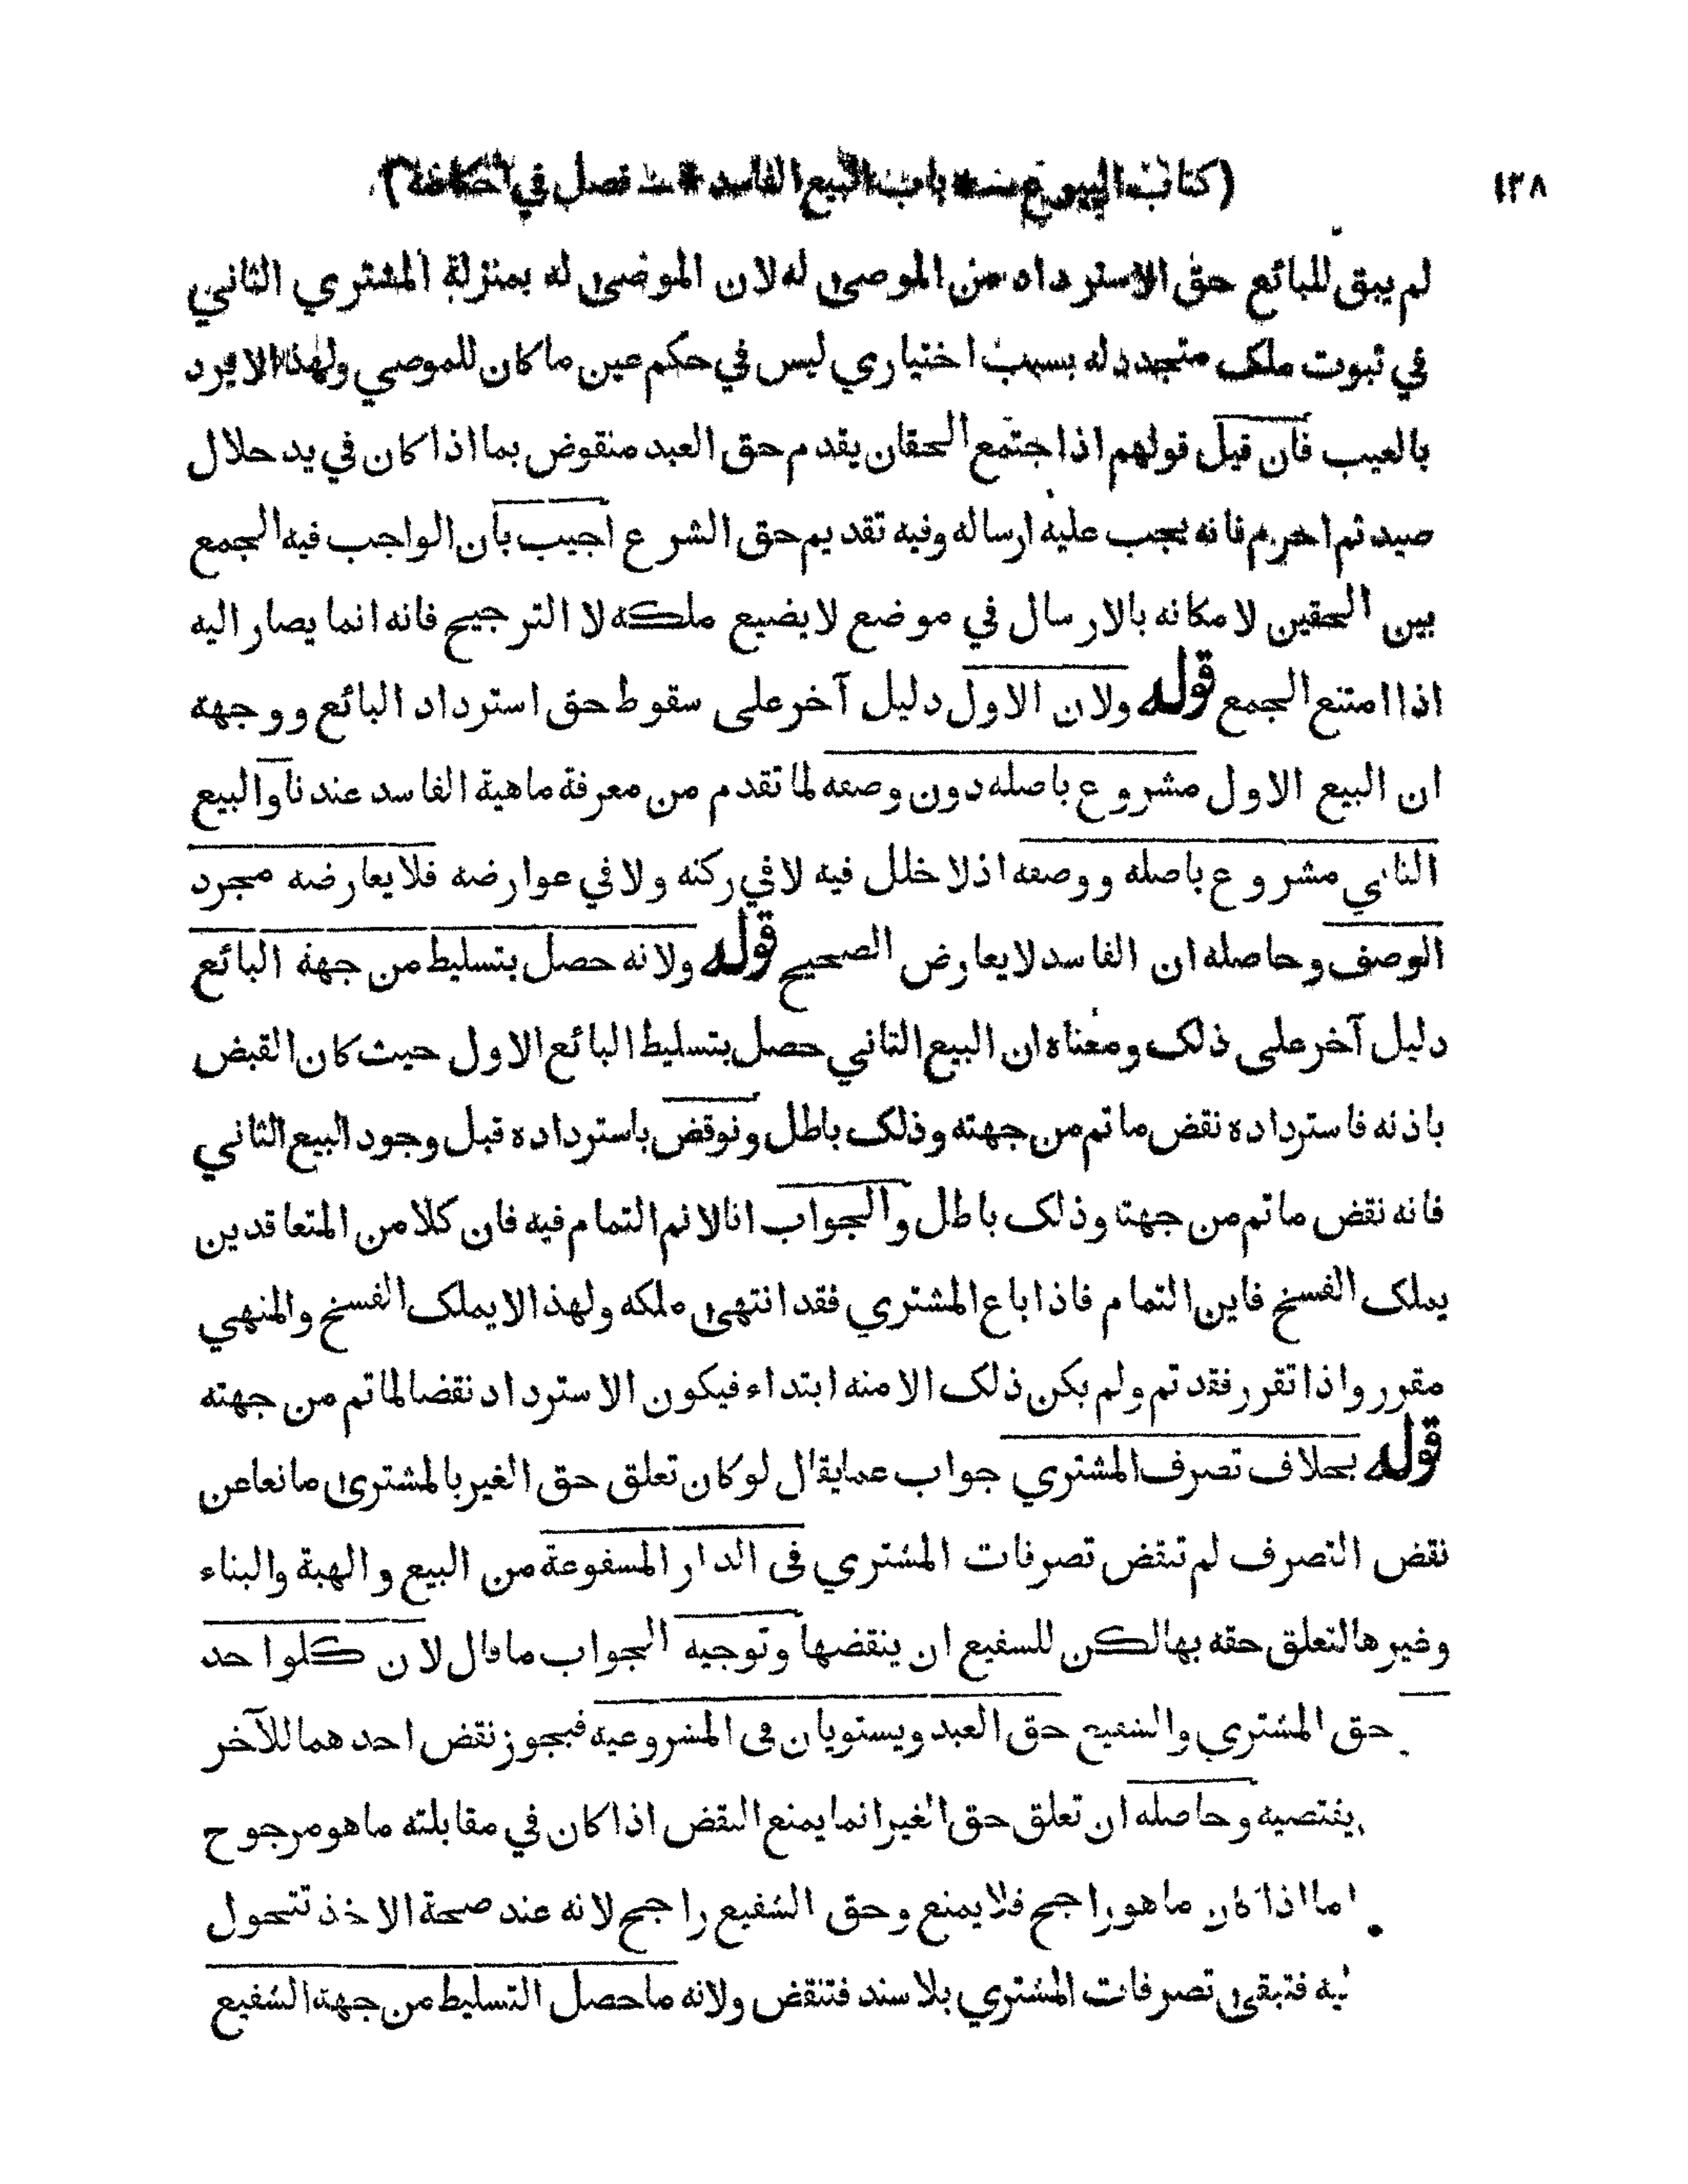 ١٣٨
(كتاب البيوع — * باب البيع الفاسد * — فصل في احكامه)
لم يبق للبائع حق الاسترداد من الموصى له لان الموصى له بمنزلة المشتري الثاني
في ثبوت ملك متجدد له بسبب اختياري ليس في حكم عين ما كان للموصي ولهذا لا يرد
بالعيب فان قيل قولهم اذا اجتمع الحقان يقدم حق العبد منقوض بما اذا كان في يد حلال
صيد ثم احرم فانه يجب عليه ارساله وفيه تقديم حق الشرع اجيب بان الواجب فيه الجمع
بين الحقين لامكانه بالارسال في موضع لا يضيع ملكه لا الترجيح فانه انما يصار اليه
اذا امتنع الجمع قوله ولان الاول دليل آخر على سقوط حق استرداد البائع ووجهه
ان البيع الاول مشروع باصله دون وصفه لما تقدم من معرفة ماهية الفاسد عندنا والبيع
الثاني مشروع باصله ووصفه اذ لا خلل فيه لا في ركنه ولا في عوارضه فلا يعارضه مجرد
الوصف وحاصله ان الفاسد لا يعارض الصحيح قوله ولانه حصل بتسليط من جهة البائع
دليل آخر على ذلك ومعناه ان البيع الثاني حصل بتسليط البائع الاول حيث كان القبض
باذنه فاسترداده نقض ما تم من جهته وذلك باطل ونوقض باسترداده قبل وجود البيع الثاني
فانه نقض ما تم من جهته وذلك باطل والجواب انا لا نم التمام فيه فان كلا من المتعاقدين
يملك الفسخ فاين التمام فاذا باع المشتري فقد انتهى ملكه ولهذا لا يملك الفسخ والمنهي
مقرر واذا تقرر فقد تم ولم يكن ذلك الا منه ابتداء فيكون الاسترداد نقضا لما تم من جهته
قوله بخلاف تصرف المشتري جواب عما يقال لو كان تعلق حق الغير بالمشترى مانعا عن
نقض التصرف لم تنقض تصرفات المشتري في الدار المشفوعة من البيع والهبة والبناء
وغيرها لتعلق حقه بها لكن للشفيع ان ينقضها وتوجيه الجواب ما قال لان كلواحد
حق المشتري والشفيع حق العبد ويستويان في المشروعيه فيجوز نقض احدهما للآخر
يقتضيه وحاصله ان تعلق حق الغير انما يمنع النقض اذا كان في مقابلته ما هو مرجوح
اما اذا كان ما هو راجح فلا يمنع وحق الشفيع راجح لانه عند صحة الاخذ تتحول
ليه فتبقى تصرفات المشتري بلا سند فتنقض ولانه ما حصل التسليط من جهة الشفيع